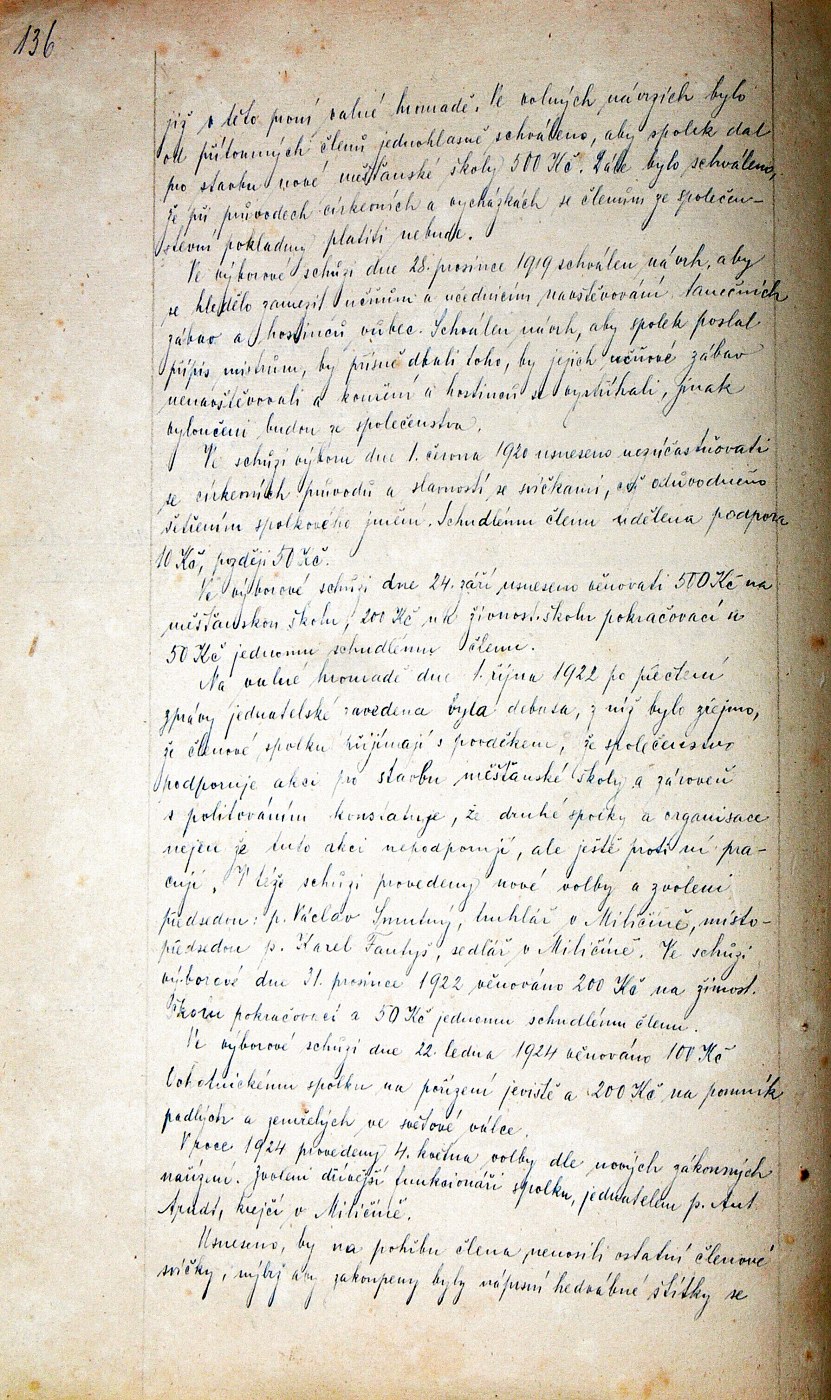 136
již v této první valné hromadě. Ve volných návrzích bylo
od přítomných členů jednohlasně schváleno, aby spolek dal
pro stavbu nové měšťanské školy 500 Kč. Dále bylo schváleno,
že při průvodech církevních a vycházkách se členům ze společen-
stevní pokladny platiti nebude.
Ve výborové schůzi dne 28. prosince 1919 schválen návrh, aby
se hledělo zamezit učňům a učednicím navštěvování tanečních
zábav a hostinců vůbec. Schválen návrh, aby spolek poslal
přípis mistrům, by přísně dbali toho, by jejich učňové zábav
nenavštěvovali a kouření a hostinců se vystříhali, jinak
vyloučeni budou ze společenstva.
Ve schůzi výboru dne 1. června 1920 usneseno nezúčastňovati
se církevních průvodů a slavností se svíčkami, což odůvodněno
šetřením spolkového jmění. Schudlému členu udělena podpora
10 Kč, později 50 Kč.
Ve výborové schůzi dne 24. září usneseno věnovati 500 Kč na
měšťanskou školu, 200 Kč na živnost. školu pokračovací a
50 Kč jednomu schudlému členu.
Na valné hromadě dne 1. října 1922 po přečtení
zprávy jednatelské zavedena byla debata, z níž bylo zřejmo,
že členové spolku přijímají s povděkem, že společenstvo
podporuje akci pro stavbu měšťanské školy a zároveň
s politováním konstatuje, že druhé spolky a organisace
nejen že tuto akci nepodporují, ale ještě proti ní pra-
cují. V téže schůzi provedeny nové volby a zvoleni
předsedou: p. Václav Smutný, truhlář v Miličíně, místo-
předsedou p. Karel Fantyš, sedlář v Miličíně. Ve schůzi
výborové dne 31. prosince 1922 věnováno 200 Kč na živnost.
školu pokračovací a 50 Kč jednomu schudlému členu.
Ve výborové schůzi dne 22. ledna 1924 věnováno 100 Kč
Ochotnickému spolku na pořízení jeviště a 200 Kč na pomník
padlých a zemřelých ve světové válce.
V roce 1924 provedeny 4. května volby dle nových zákonných
nařízení. Zvoleni dřívější funkcionáři spolku, jednatelem p. Ant.
Arndt, krejčí v Miličíně.
Usneseno, by na pohřbu člena nenosili ostatní členové
svíčky, nýbrž aby zakoupeny byly nápisní hedvábné štítky se